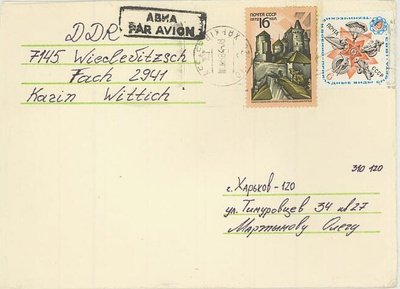 АВИА
PAR AVION
DDR
7145 Wiederitzsch
Fach 2941
Karin Wittich
ПОЧТА СССР
16 коп
ПОЧТА СССР
310 120
г. Харьков-120
ул. Тимуровцев 34 кв 27
Мартынову Олегу